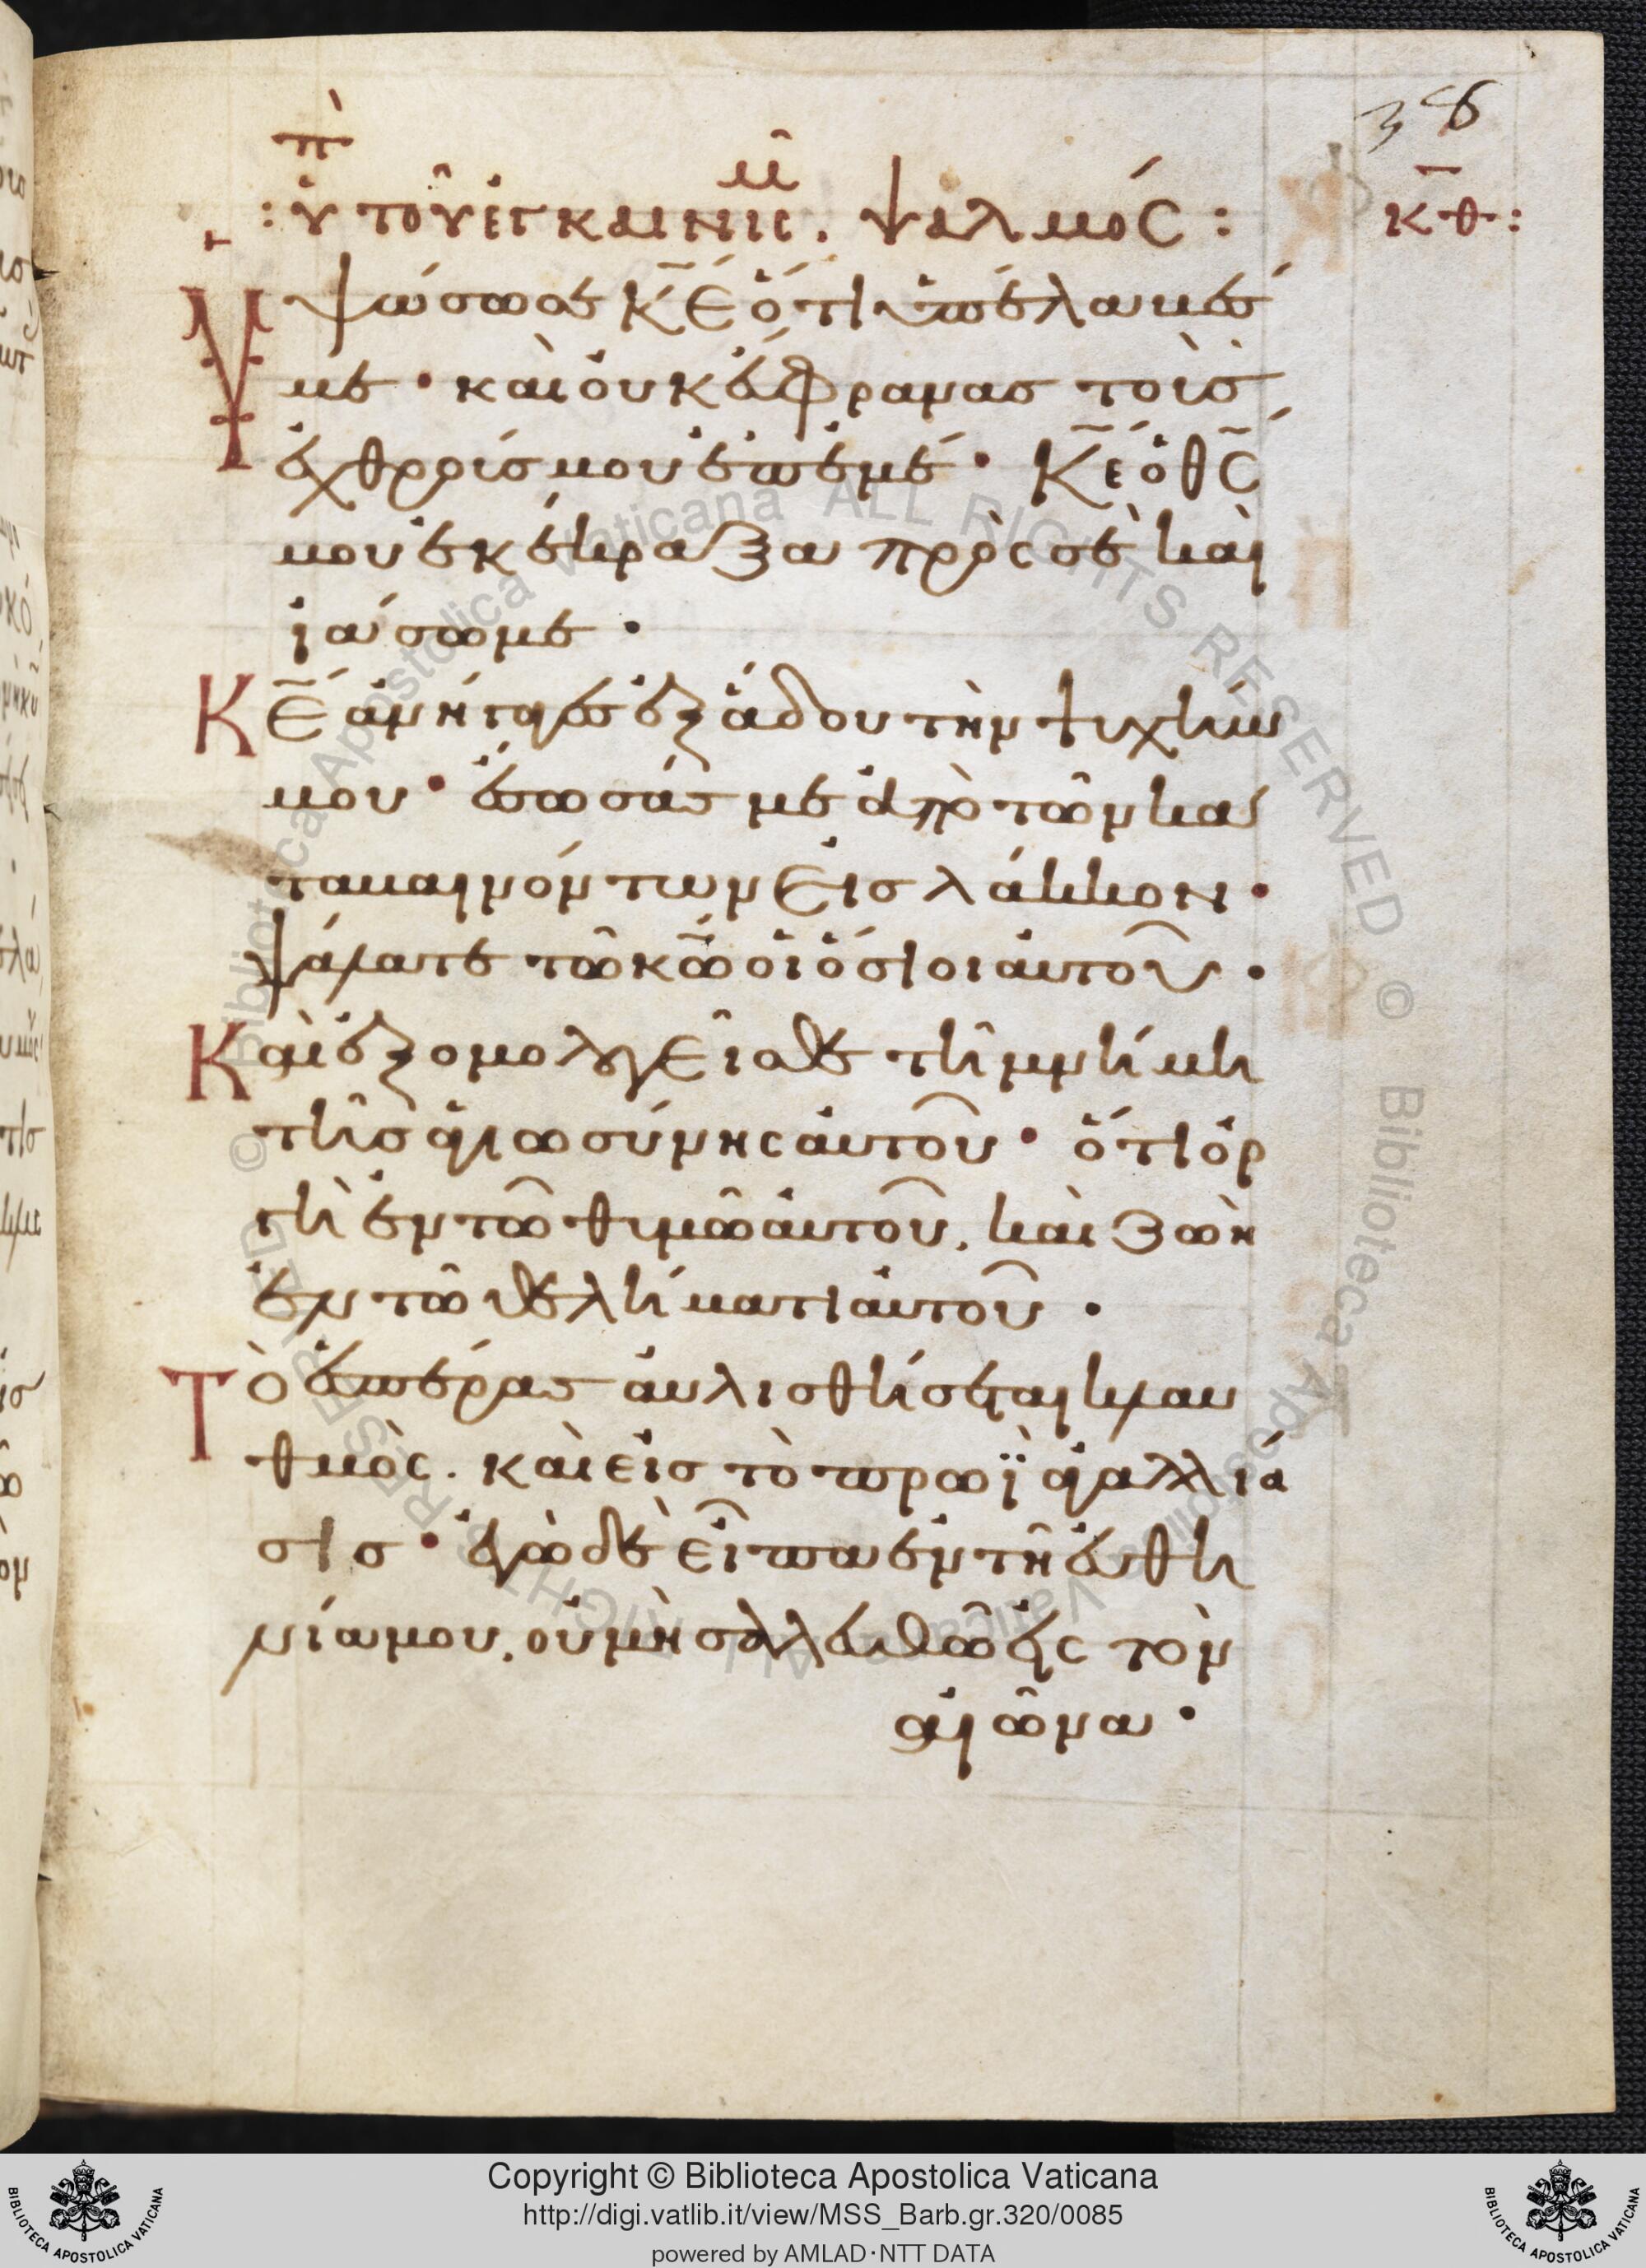 38
ὑπ τοῦ ἐγκαινισμ. ψαλμός :
κθ :
Ὑψώσω σε κ̅ε̅ ὅτι ὑπέλαβές
με · καὶ οὐκ ἔφρανας τοὺς
ἐχθρούς μου ἐπ' ἐμέ · κ̅ε̅ ὁ θ̅ς̅
μου ἐκέκραξα πρὸς σὲ καὶ
ἰάσω με ·
Κ̅ε̅ ἀνήγαγες ἐξ ἅδου τὴν ψυχήν
μου · ἔσωσάς με ἀπὸ τῶν κα
ταβαινόντων εἰς λάκκον ·
ψάλατε τῶ κ̅ω̅ οἱ ὅσιοι αὐτοῦ ·
Καὶ ἐξομολογεῖσθε τῆ μνήμη
τῆς ἁγιωσύνης αὐτοῦ · ὅτι ὀρ
γὴ ἐν τῶ θυμῶ αὐτοῦ, καὶ ζωὴ
ἐν τῶ θελήματι αὐτοῦ ·
Τὸ ἑσπέρας αὐλισθήσεται κλαυ
θμὸς. καὶ εἰς τὸ πρωῒ ἀγαλλία
σις · ἐγὼ δὲ εἶπα ἐν τῆ εὐθη
νία μου, οὐ μὴ σαλευθῶ εἰς τὸν
αἰῶνα ·
© Biblioteca Apostolica Vaticana ALL RIGHTS RESERVED © Biblioteca Apostolica Vaticana ALL RIGHTS RESERVED
Copyright © Biblioteca Apostolica Vaticana
http://digi.vatlib.it/view/MSS_Barb.gr.320/0085
powered by AMLAD·NTT DATA
BIBLIOTECA APOSTOLICA VATICANA
BIBLIOTECA APOSTOLICA VATICANA